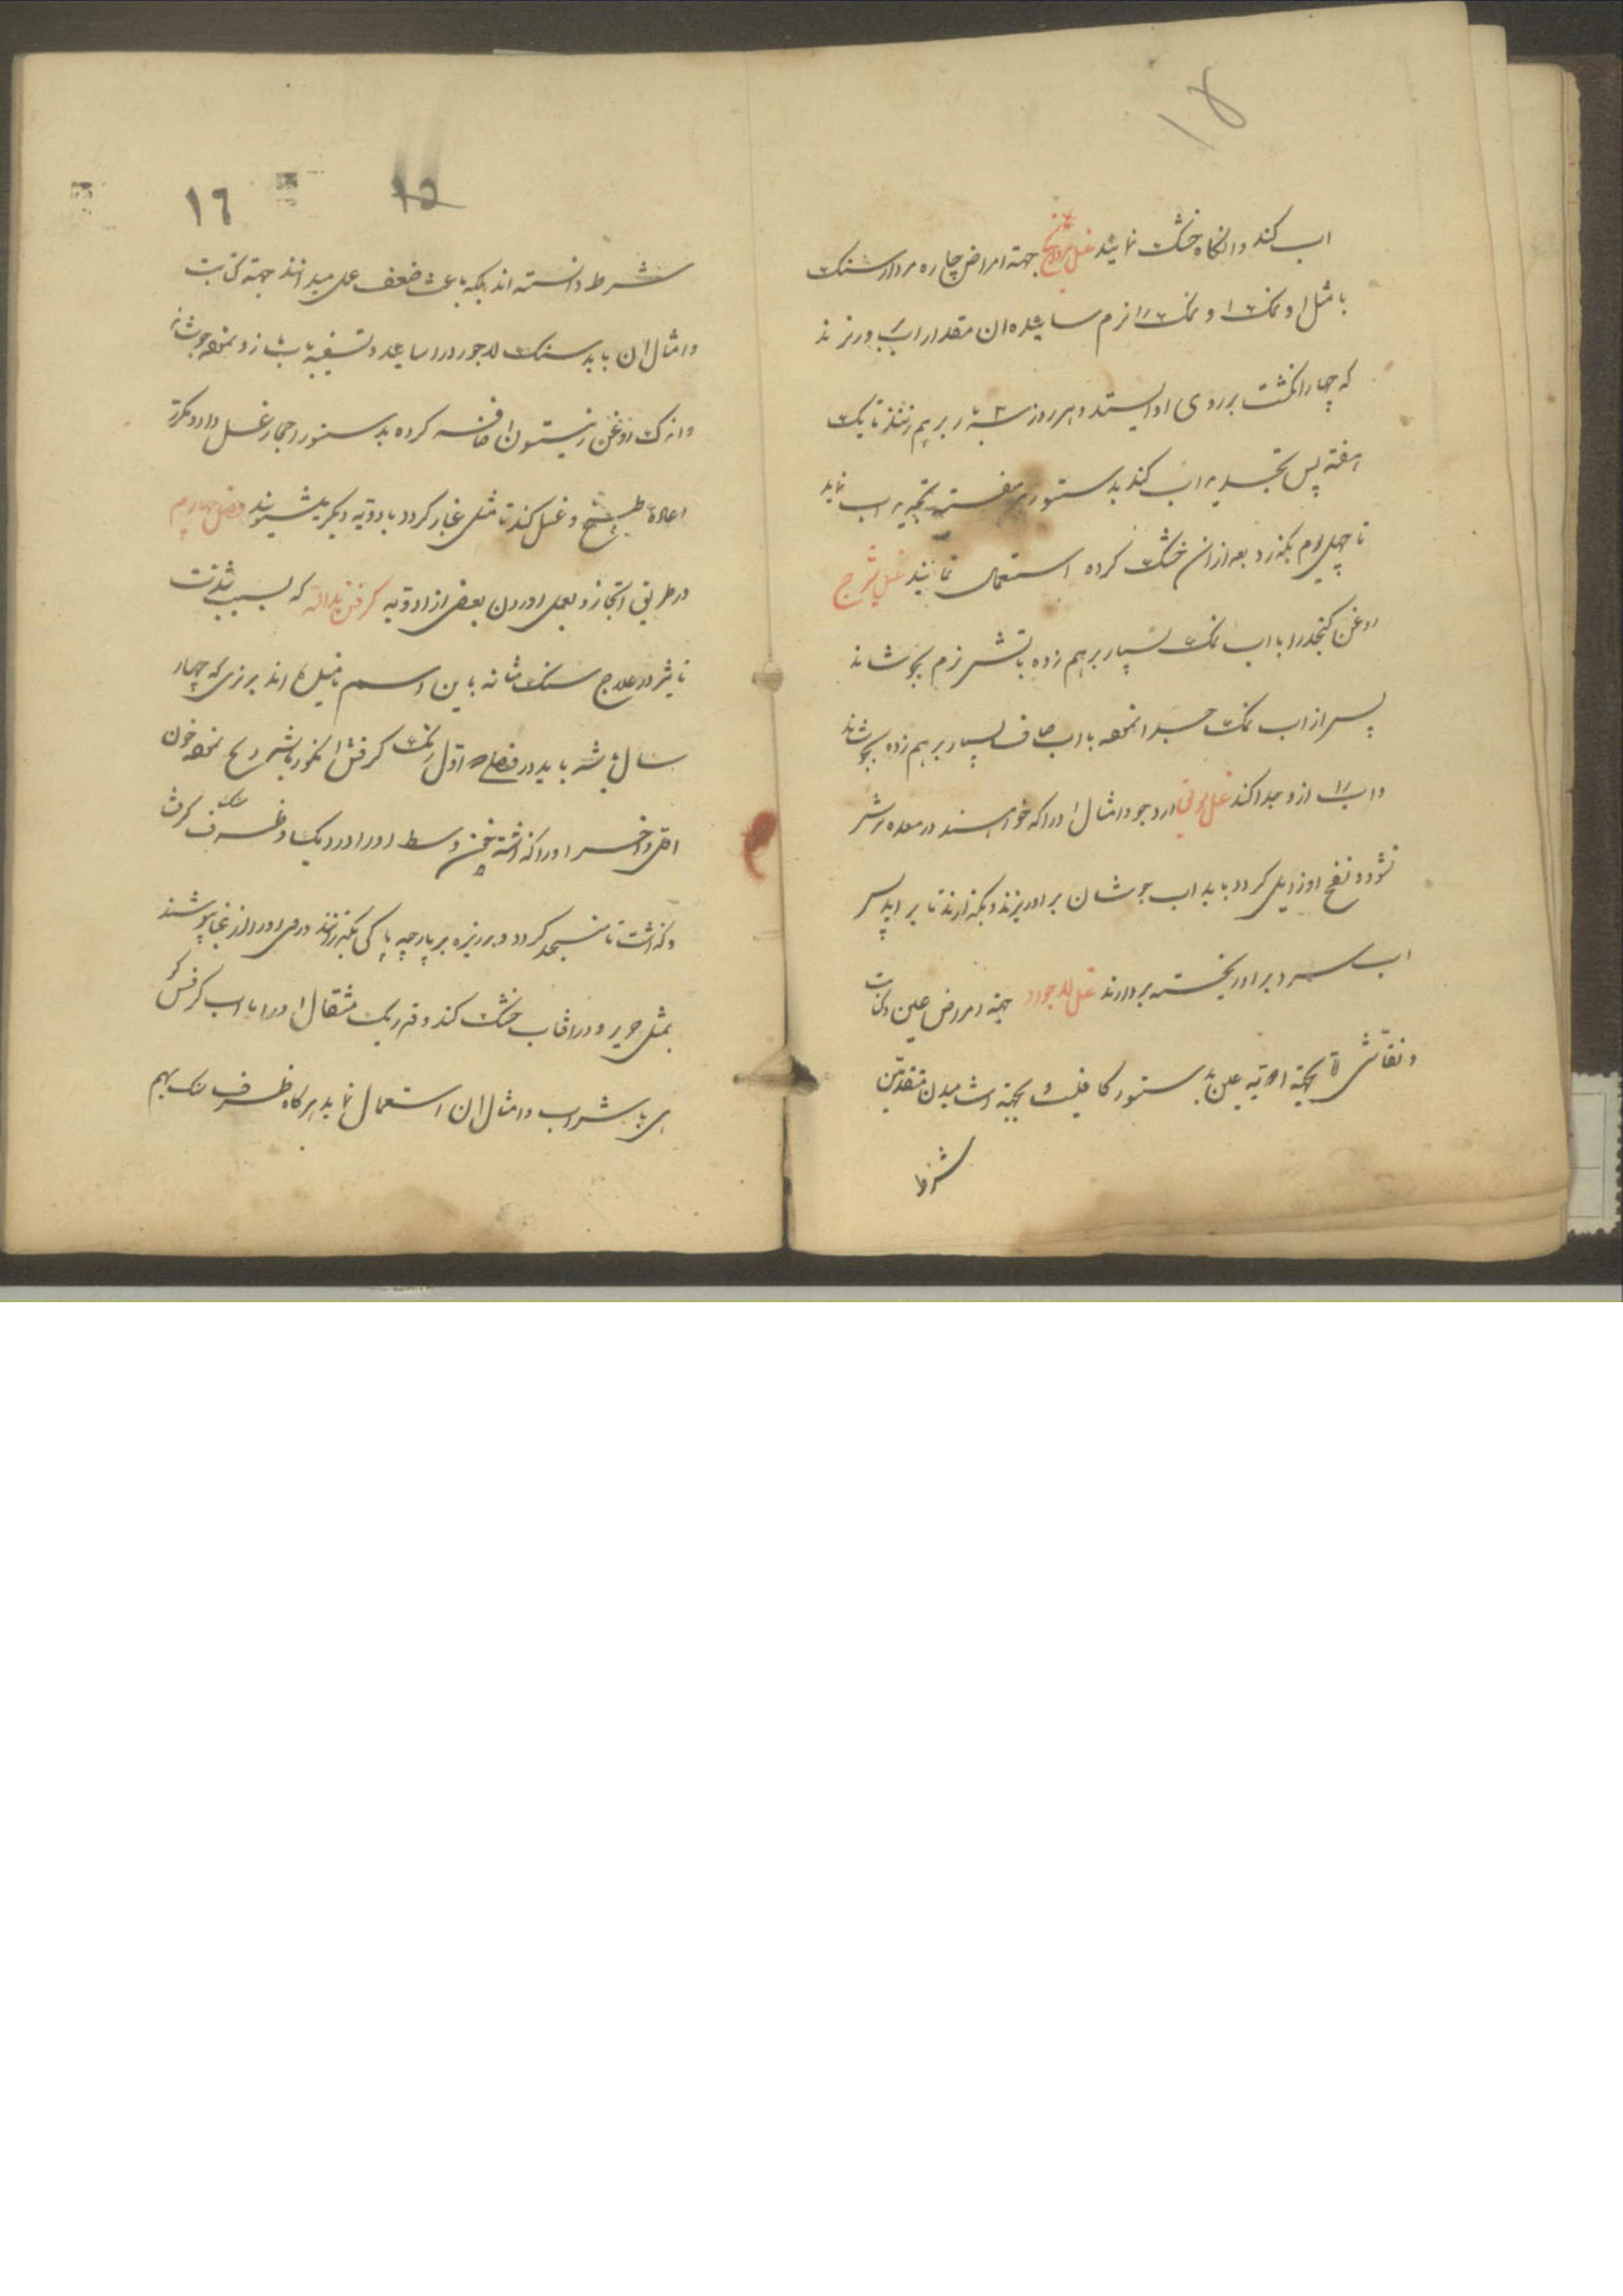 ۱۸
اب کند وانکاه خشک نمایند غسل مرداسنج جهته امراض چاره مردارسنک
با مثل او نمک و نمک را نرم ساییده ان مقدار اب ورنزند
که چهار انکشت برروی او ایستد و هر روز ۳ بار برهم زنند تا یک
هفته پس تجدید اب کند بدستور هر هفته تجدید اب نماید
تا چهل یوم بکذرد بعد ازان خشک کرده استعمال نمایند غسل شیرج
روغن کنجد را با اب نمک بسیار برهم زده باتش نرم بجوشاند
پس از اب نمک جدا نموده با اب صاف بسیار برهم زده بجوشاند
واب را ازو جدا کند غسل سویق ارد جو وامثال اورا که خواهند در معده ترش
نشود و نفخ او زایل کردد باید اب جوشان بر او ریزند و بکذارند تا براید پس
اب سرد بر او ریخته بردارند غسل لاجورد جهته امراض عین وکتابت
ونقاشی امّا بجهته ادویه عین بدستور کافیست و بجهته اشامیدن متقدمین
شرط
۱۵
۱٦
شرط دانسته اند بلکه باعث ضعف عمل میدانند جهته کتابت
وامثال ان باید سنک لاجورد را ساید و تسقیه باب نموده جوشانیده
واندک روغن زیتون اضافه کرده بدستور احجار غسل دارد و مکرّر
اعاده طبخ و غسل کند تا مثل غبار کردد با ادویه دیکر بشویند فصل چهارم
در طریق اتخاذ و بعمل اوردن بعضی از ادویه کرفتن یدالله که بسبب شدّت
تاثیر در علاج سنک مثانه باین اسم نامیده اند بزی که چهار
سال باشد باید در فصل اوّل رنک کرفتن انکور باشد ذبح نموده خون
اوّل واخر او را کذاشته خون وسط او را در دیک و ظرف سنک کرفت
وکذاشت تا منجمد کردد و ریزه بر پارچه پاکی بکذرانند و روی او را از غبار پوشند
بمثل حریر و در افتاب خشک کند و قدر یک مثقال او را با اب کرفس
یا با شراب وامثال ان استعمال نماید هرکاه ظرف سنک بهم